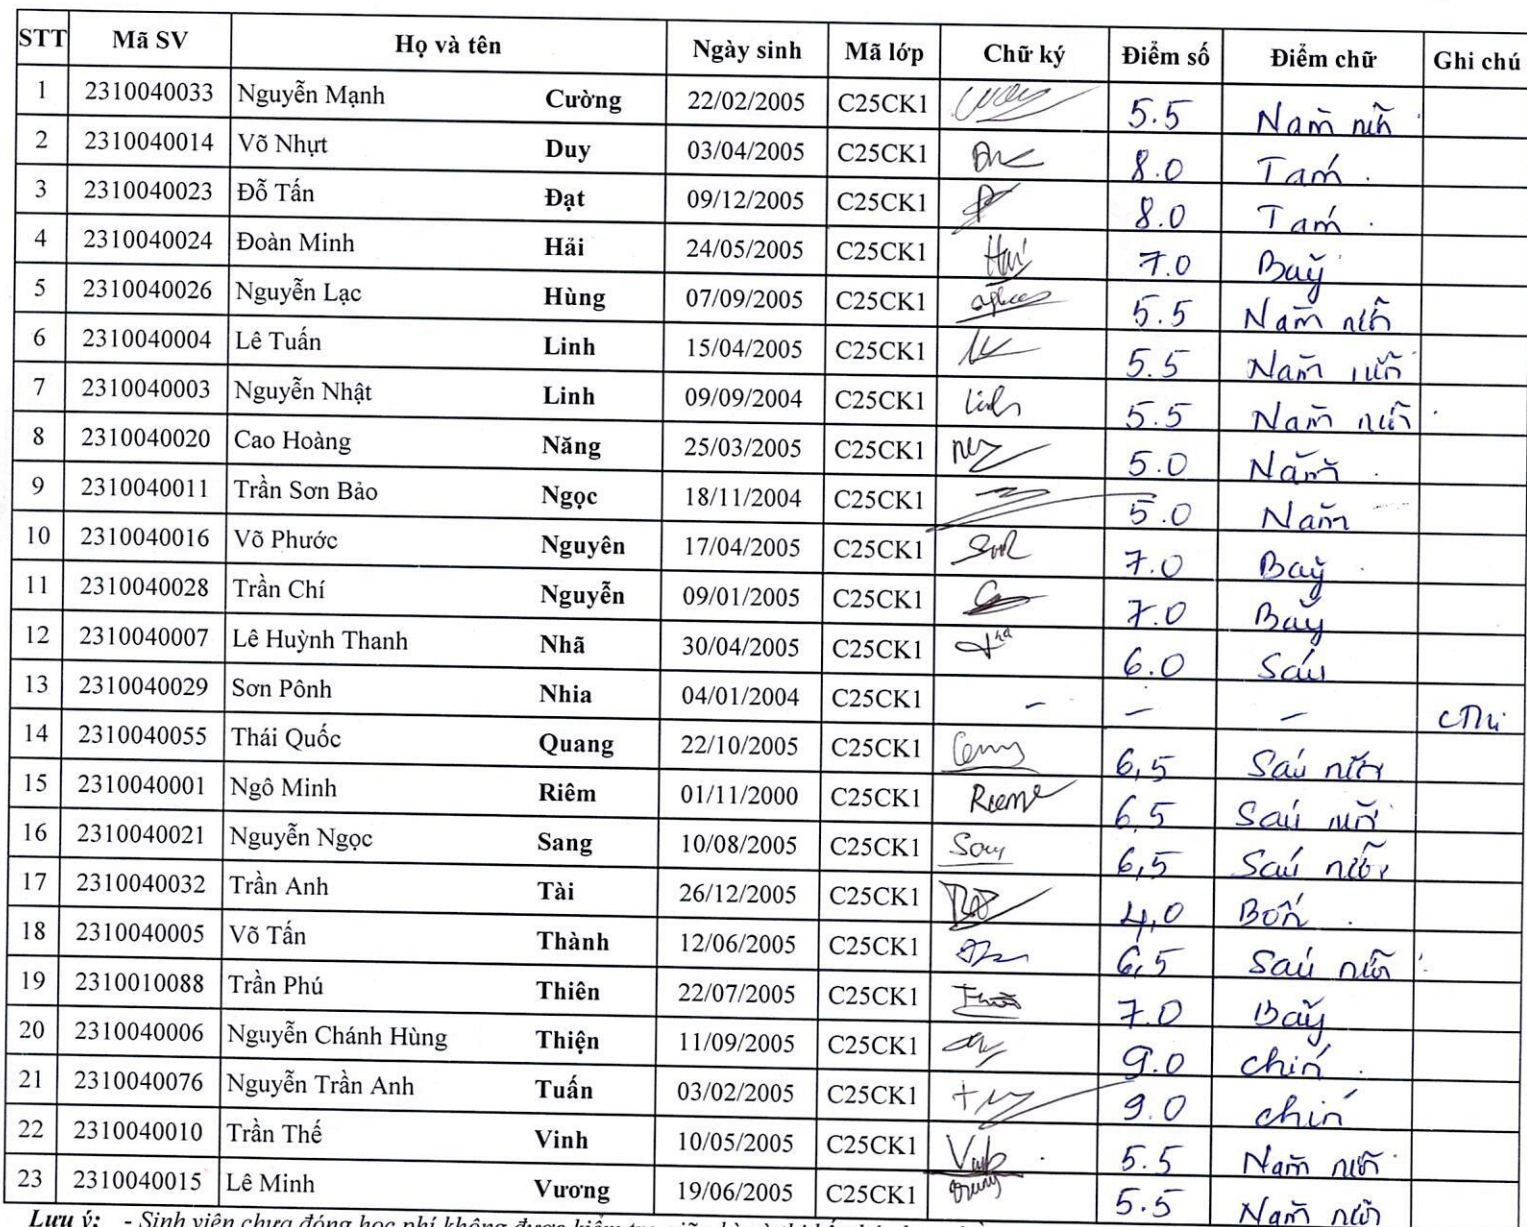 STT Mã SV Họ và tên Ngày sinh Mã lớp Chữ ký Điểm số Điểm chữ Ghi chú
1 2310040033 Nguyễn Mạnh Cường 22/02/2005 C25CK1 5.5 Năm rưỡi
2 2310040014 Võ Nhựt Duy 03/04/2005 C25CK1 8.0 Tám.
3 2310040023 Đỗ Tấn Đạt 09/12/2005 C25CK1 8.0 Tám.
4 2310040024 Đoàn Minh Hải 24/05/2005 C25CK1 Hai 7.0 Bảy
5 2310040026 Nguyễn Lạc Hùng 07/09/2005 C25CK1 5.5 Năm rưỡi
6 2310040004 Lê Tuấn Linh 15/04/2005 C25CK1 5.5 Năm rưỡi
7 2310040003 Nguyễn Nhật Linh 09/09/2004 C25CK1 Linh 5.5 Năm rưỡi
8 2310040020 Cao Hoàng Năng 25/03/2005 C25CK1 5.0 Năm.
9 2310040011 Trần Sơn Bảo Ngọc 18/11/2004 C25CK1 5.0 Năm
10 2310040016 Võ Phước Nguyên 17/04/2005 C25CK1 7.0 Bảy
11 2310040028 Trần Chí Nguyễn 09/01/2005 C25CK1 7.0 Bảy
12 2310040007 Lê Huỳnh Thanh Nhã 30/04/2005 C25CK1 6.0 Sáu
13 2310040029 Sơn Pônh Nhia 04/01/2004 C25CK1 - - -
14 2310040055 Thái Quốc Quang 22/10/2005 C25CK1 6,5 Sáu rưỡi
15 2310040001 Ngô Minh Riêm 01/11/2000 C25CK1 Rieme 6,5 Sáu rưỡi
16 2310040021 Nguyễn Ngọc Sang 10/08/2005 C25CK1 6,5 Sáu rưỡi
17 2310040032 Trần Anh Tài 26/12/2005 C25CK1 4,0 Bốn.
18 2310040005 Võ Tấn Thành 12/06/2005 C25CK1 6,5 Sáu rưỡi
19 2310010088 Trần Phú Thiên 22/07/2005 C25CK1 7.0 Bảy
20 2310040006 Nguyễn Chánh Hùng Thiện 11/09/2005 C25CK1 9.0 chín.
21 2310040076 Nguyễn Trần Anh Tuấn 03/02/2005 C25CK1 9.0 chín
22 2310040010 Trần Thế Vinh 10/05/2005 C25CK1 5.5 Năm rưỡi
23 2310040015 Lê Minh Vương 19/06/2005 C25CK1 5.5 Năm rưỡi
Lưu ý: - Sinh viên chưa đóng học phí không được kiểm tra giữa kỳ và thi kết thúc